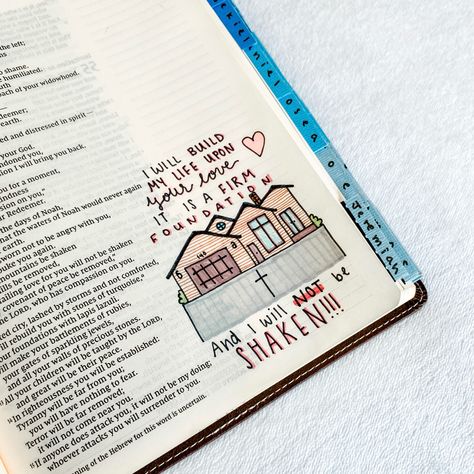 the left;
to shame.
humiliated.
oach of your widowhood.
edeemer;
earth.
and distressed in spirit—
your God.
bandoned you,
ion I will bring you back.
you for a moment,
kindness
sion on you,”
ur Redeemer.
he days of Noah,
that the waters of Noah would never again
earth.
worn not to be angry with you,
buke you again.
mountains be shaken
ills be removed,
failing love for you will not be shaken
ovenant of peace be removed,”
he LORD, who has compassion on you.
ed city, lashed by storms and not comforted,
will rebuild you with stones of turquoise,
our foundations with lapis lazuli.
will make your battlements of rubies,
your gates of sparkling jewels,
and all your walls of precious stones.
All your children will be taught by the LORD,
and great will be their peace.
In righteousness you will be established:
Tyranny will be far from you;
you will have nothing to fear.
Terror will be far removed;
it will not come near you.
If anyone does attack you, it will not be my doing;
whoever attacks you will surrender to you.
ning of the Hebrew for this word is uncertain.
I WILL BUILD
MY LIFE UPON
your love
IT IS A FIRM
FOUNDATION
146
And I will NOT be
SHAKEN!!!